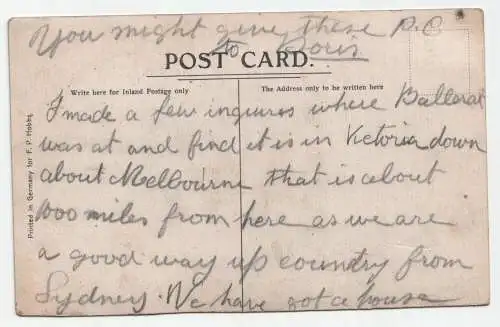 You might give these P.C
to Doris
POST CARD.
Write here for Inland Postage only
The Address only to be written here
I made a few inquires where Ballarat
was at and find it is in Victoria down
about Melbourne that is about
1000 miles from here as we are
a good way up country from
Sydney. We have got a house
Printed in Germany for F. P. Hobbs,